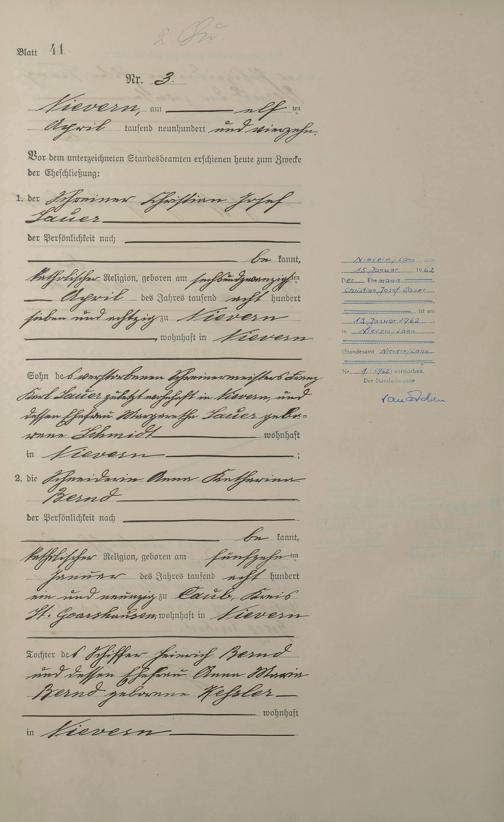 Blatt 41
Nr. 3.
Nievern, am elf ten
April tausend neunhundert und vierzehn.
Vor dem unterzeichneten Standesbeamten erschienen heute zum Zwecke
der Eheschließung:
1. der Schreiner Christian Josef
Sauer
der Persönlichkeit nach
be kannt,
katholischer Religion, geboren am sechsundzwanzig ten
April des Jahres tausend acht hundert
sieben und achtzig zu Nievern
, wohnhaft in Nievern
Sohn des verstorbenen Schreinermeisters Franz
Karl Sauer zuletzt wohnhaft in Nievern, und
dessen Ehefrau Margaretha Sauer gebo-
rene Schmidt wohnhaft
in Nievern ;
2. die Schneiderin Anna Katharina
Bernd
der Persönlichkeit nach
be kannt,
katholischer Religion, geboren am fünfzehn ten
Januar des Jahres tausend acht hundert
ein und neunzig zu Caub, Kreis
St. Goarshausen, wohnhaft in Nievern
Tochter des Schiffer Heinrich Bernd
und dessen Ehefrau Anna Maria
Bernd geborene Kessler
wohnhaft
in Nievern
Nievern/Lahn
15. Januar 1962
Der Ehemann
Christian Josef Sauer
ist am
13. Januar 1962
in Nievern/Lahn
Standesamt Nievern/Lahn
Nr. 1/1962 verstorben.
Der Standesbeamte